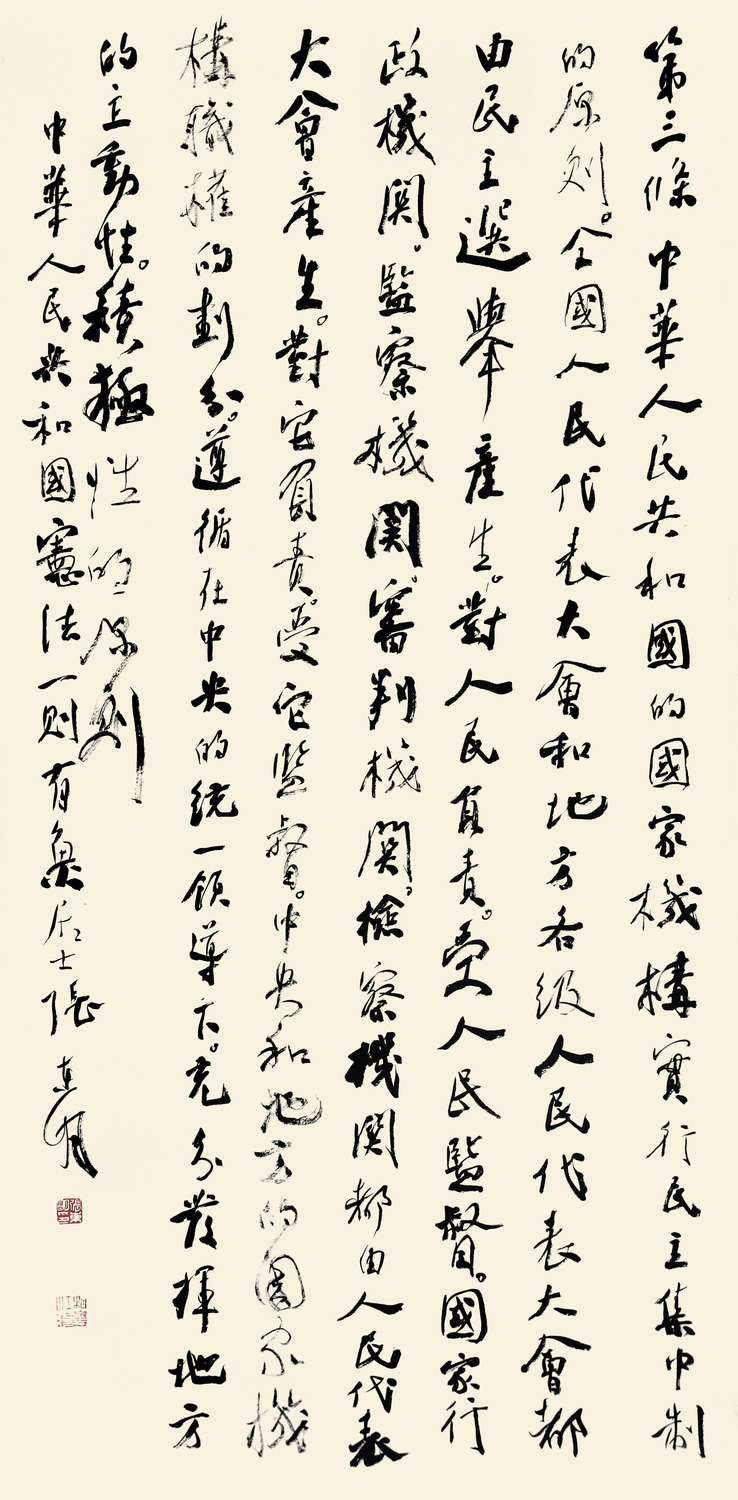 第三條中華人民共和國的國家機構實行民主集中制
的原則。全國人民代表大會和地方各級人民代表大會都
由民主選舉產生。對人民負責。受人民監督。國家行
政機関。監察機関。審判機関。檢察機関都由人民代表
大會產生。對它負責。受它監督。中央和地方的國家機
構職權的劃分。遵循在中央的統一領導下。充分發揮地方
的主動性。積極性的原則
中華人民共和國憲法一則有魚居士張